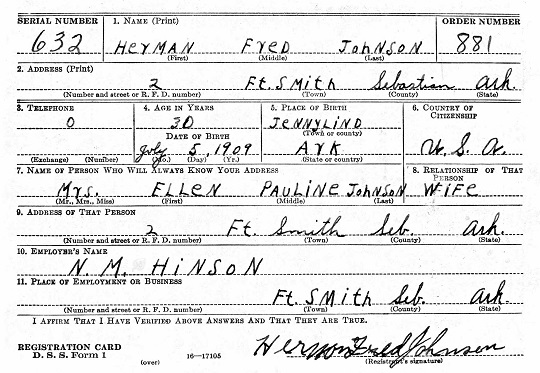 SERIAL NUMBER 1. NAME (Print) ORDER NUMBER
632 HerMAN FrED JoHNSON 881
(First) (Middle) (Last)
2. ADDRESS (Print)
2 Ft. SMitH Sebastian Ark.
(Number and street or R. F. D. number) (Town) (County) (State)
3. TELEPHONE 4. AGE IN YEARS 5. PLACE OF BIRTH 6. COUNTRY OF CITIZENSHIP
0 30 JENNYLIND
(Town or county)
DATE OF BIRTH
July 5, 1909 ArK U. S. A.
(Exchange) (Number) (Mo.) (Day) (Yr.) (State or country)
7. NAME OF PERSON WHO WILL ALWAYS KNOW YOUR ADDRESS 8. RELATIONSHIP OF THAT PERSON
Mrs. ELLEN PAULINE JoHNSON WiFE
(Mr., Mrs., Miss) (First) (Middle) (Last)
9. ADDRESS OF THAT PERSON
2 Ft. Smith Seb. Ark.
(Number and street or R. F. D. number) (Town) (County) (State)
10. EMPLOYER'S NAME
N. M. HiNSON
11. PLACE OF EMPLOYMENT OR BUSINESS
Ft. SMitH Seb. Ark.
(Number and street or R. F. D. number) (Town) (County) (State)
I AFFIRM THAT I HAVE VERIFIED ABOVE ANSWERS AND THAT THEY ARE TRUE.
REGISTRATION CARD
D. S. S. Form 1 16—17105 Hermon Fred Johnson
(over) (Registrant's signature)